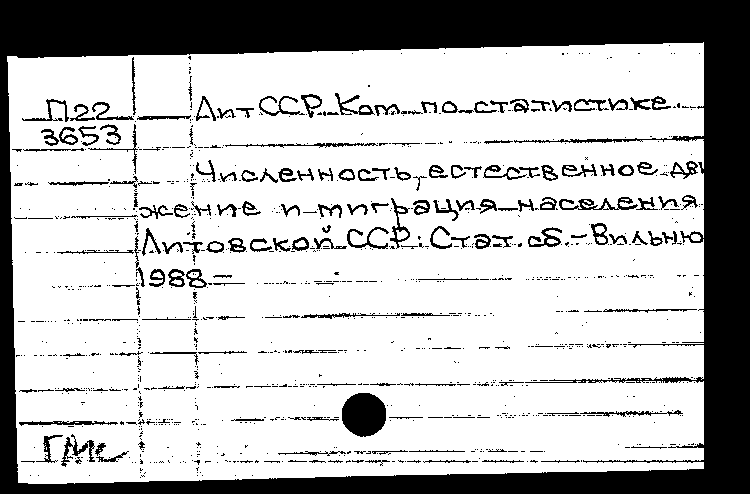 П22
3653
Лит ССР. Ком. по статистике.
Численность, естественное дви
жение и миграция населения
Литовской ССР: Стат. сб. - Вильню
1988 -